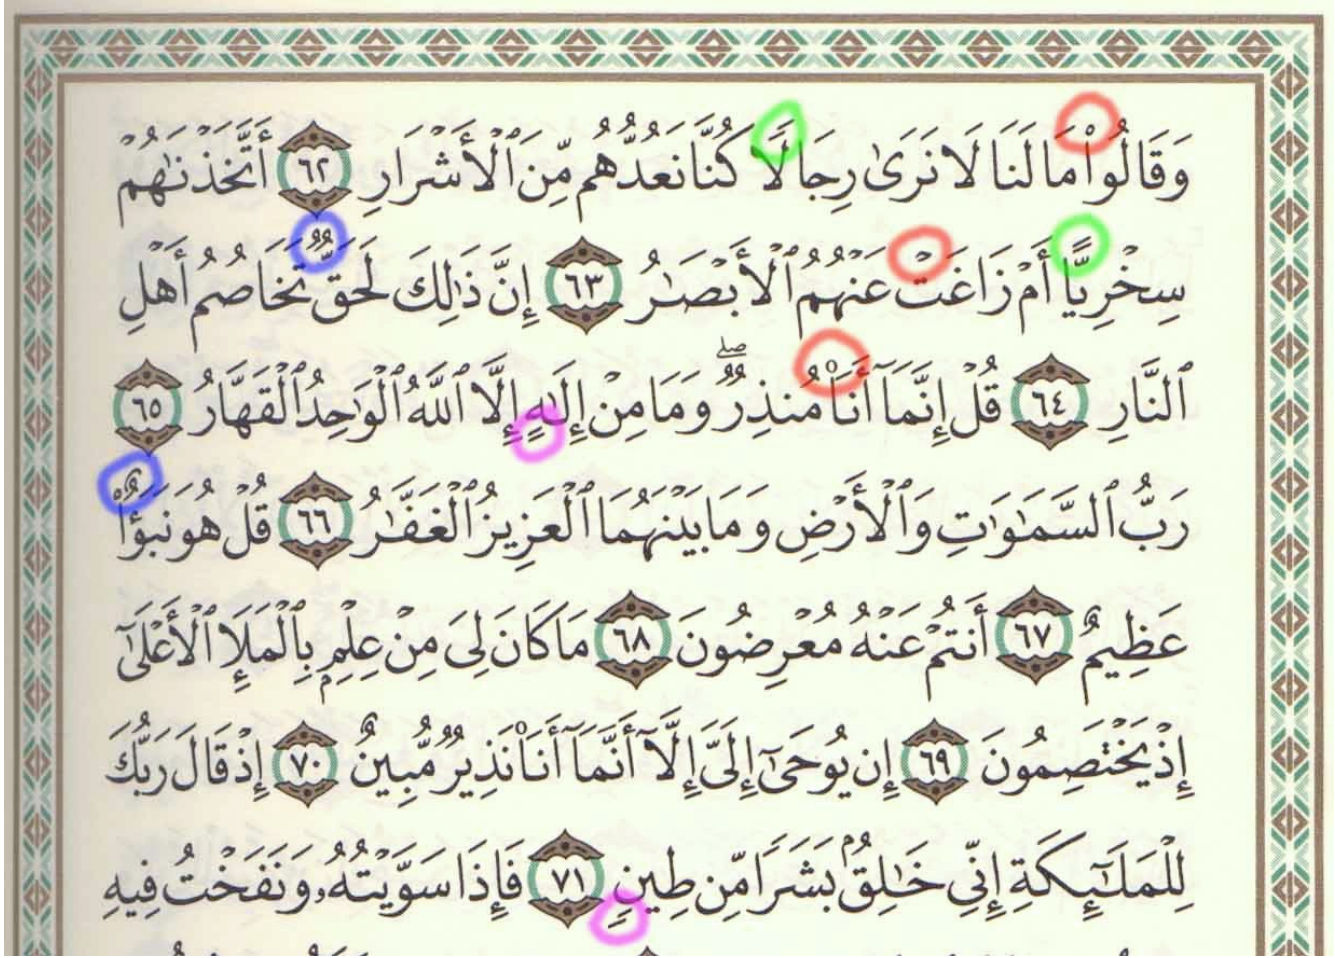 وَقَالُوا۟ مَا لَنَا لَا نَرَىٰ رِجَالًا كُنَّا نَعُدُّهُم مِّنَ ٱلْأَشْرَارِ ٦٢ أَتَّخَذْنَٰهُمْ
سِخْرِيًّا أَمْ زَاغَتْ عَنْهُمُ ٱلْأَبْصَٰرُ ٦٣ إِنَّ ذَٰلِكَ لَحَقٌّ تَخَاصُمُ أَهْلِ
ٱلنَّارِ ٦٤ قُلْ إِنَّمَآ أَنَا۠ مُنذِرٌ ۖ وَمَا مِنْ إِلَٰهٍ إِلَّا ٱللَّهُ ٱلْوَٰحِدُ ٱلْقَهَّارُ ٦٥
رَبُّ ٱلسَّمَٰوَٰتِ وَٱلْأَرْضِ وَمَا بَيْنَهُمَا ٱلْعَزِيزُ ٱلْغَفَّٰرُ ٦٦ قُلْ هُوَ نَبَؤٌا۟
عَظِيمٌ ٦٧ أَنتُمْ عَنْهُ مُعْرِضُونَ ٦٨ مَا كَانَ لِىَ مِنْ عِلْمٍۭ بِٱلْمَلَإِ ٱلْأَعْلَىٰٓ
إِذْ يَخْتَصِمُونَ ٦٩ إِن يُوحَىٰٓ إِلَىَّ إِلَّآ أَنَّمَآ أَنَا۠ نَذِيرٌ مُّبِينٌ ٧٠ إِذْ قَالَ رَبُّكَ
لِلْمَلَٰٓئِكَةِ إِنِّى خَٰلِقٌۢ بَشَرًا مِّن طِينٍ ٧١ فَإِذَا سَوَّيْتُهُۥ وَنَفَخْتُ فِيهِ